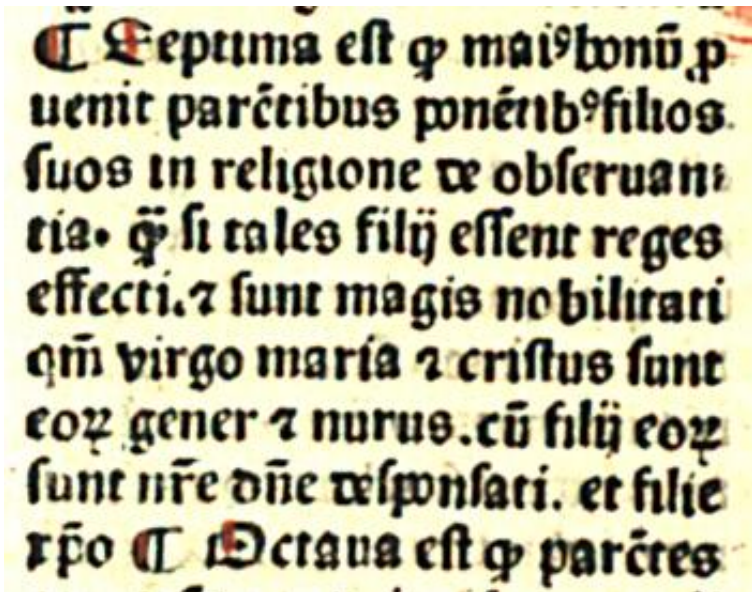 ¶ Septima est ꝙ maiꝰ bonū ꝓ
uenit parētibus ponētibꝰ filios
suos in religione de obseruan⸗
tia. q̄ꝫ si tales filij essent reges
effecti. ⁊ sunt magis nobilitati
qm̄ virgo maria ⁊ cristus sunt
eoꝝ gener ⁊ nurus. cū filij eoꝝ
sunt nr̄e dn̄e desponsati. et filie
xp̄o ¶ Octaua est ꝙ parētes